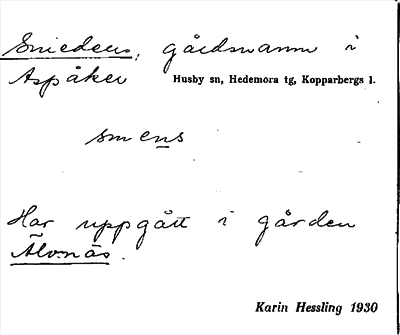 Smedens, gårdsnamn i
Aspåker Husby sn, Hedemora tg, Kopparbergs l.
smens
Har uppgått i gården
Älvnäs.
Karin Hessling 1930